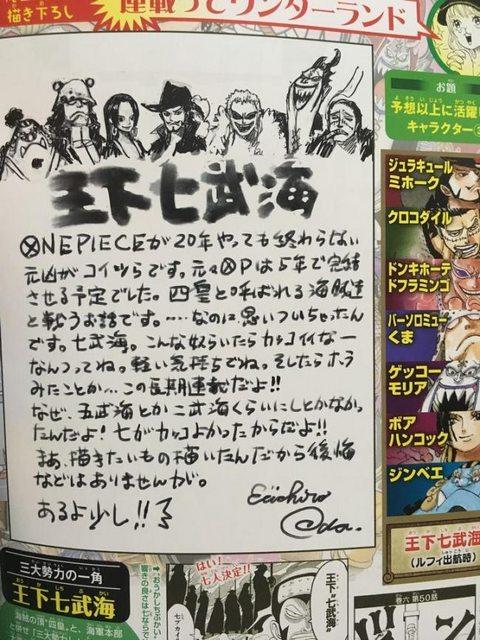 描き下ろし
連載つきワンダーランド
王下七武海
ONE PIECEが20年やっても終わらない
元凶がコイツらです。元々OPは5年で完結
させる予定でした。四皇と呼ばれる海賊達
と戦うお話です。……なのに思いついちゃったん
です。七武海。こんな奴らいたらカッコイイなー
なんつってね。軽い気持ちでね。そしたらホラ
みたことか…この長期連載だよ!!
なぜ、五武海とか二武海くらいにしとかなかっ
たんだよ!七がカッコよかったからだよ!!
まあ、描きたいもの描いたんだから後悔
などはありませんが。
あるよ少し!!
Eiichiro
Oda.
お題
予想以上に活躍
キャラクター
ジュラキュール
ミホーク
クロコダイル
ドンキホーテ
ドフラミンゴ
バーソロミュー
くま
ゲッコー
モリア
ボア
ハンコック
ジンベエ
王下七武海
(ルフィ出航時)
三大勢力の一角
王下七武海
海賊の頂"四皇"と、海軍本部
はい!
七人決定!!
王下七武海
巻六 第50話